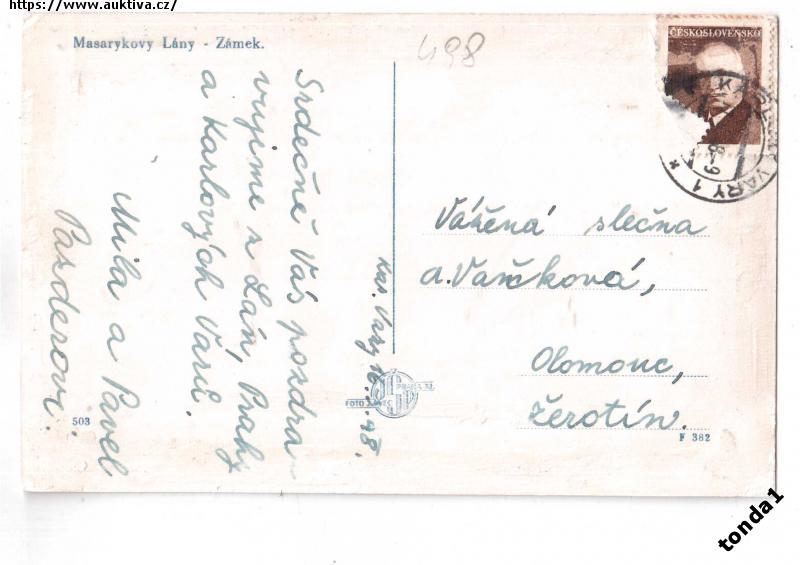 https://www.auktiva.cz/
Masarykovy Lány - Zámek.
498
ČESKOSLOVENSKO
KARLOVY VARY 1
Srdečně Vás pozdra-
vujeme z Lán, Prahy
a Karlových Varů.
Míla a Pavel
Pazderovi.
Kar. Vary 48.
Vážená slečna
A. Vaňková,
Olomouc,
Žerotín.
PRAHA XI.
503
F 382
tonda1